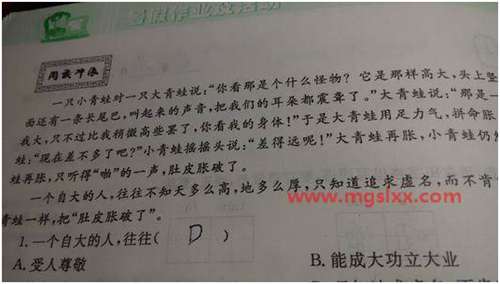 暑假作业及活动
阅读冲浪
一只小青蛙对一只大青蛙说：“你看那是个什么怪物？它是那样高大，头上竖
面还有一条长尾巴，叫起来的声音，把我们的耳朵都震聋了。”大青蛙说：“那是一
我大，只不过比我稍微高些罢了，你看我的身体！”于是大青蛙用足力气，拼命胀
蛙：“现在差不多了吧？”小青蛙摇摇头说：“差得远呢！”大青蛙再胀，小青蛙仍
蛙再胀，只听得“啪”的一声，肚皮胀破了。
一个自大的人，往往不知天多么高，地多么厚，只知道追求虚名，而不肯
青蛙一样，把“肚皮胀破了”。
www.mgslxx.com
1. 一个自大的人，往往（ D ）
A. 受人尊敬 B. 能成大功立大业